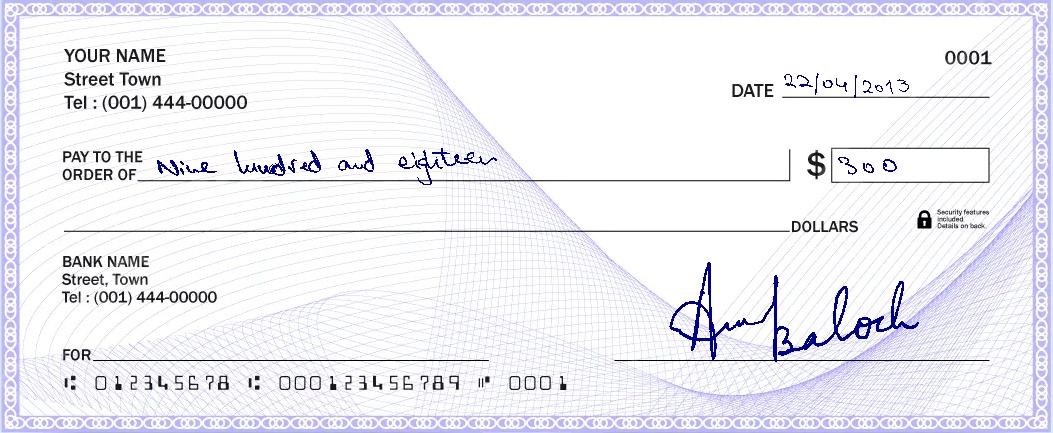 YOUR NAME
0001
Street Town
DATE 22/04/2013
Tel : (001) 444-00000
PAY TO THE
ORDER OF Nine hundred and eighteen $ 300
DOLLARS
Security features
included.
Details on back.
BANK NAME
Street, Town
Tel : (001) 444-00000
Baloch
FOR
⑆ 012345678 ⑆ 000123456789 ⑈ 0001